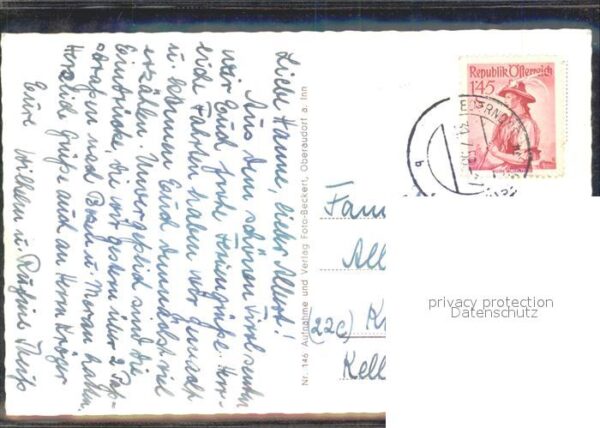 Liebe Hanne, lieber Albert!
Aus dem schönen Tirol senden
wir Euch frohe Feriengrüße. Herr-
liche Fahrten haben wir gemacht
u. können Euch demnächst viel
erzählen. Unvergeßlich sind die
Eindrücke, die wir gestern über 2 Paß-
straßen nach Bozen u. Meran hatten.
Herzliche Grüße auch an Herrn Kröger
Eure Wilhelm u.
Nr. 146 Aufnahme und Verlag Foto-Beckert, Oberaudorf a. Inn
Republik Österreich
1.45
Fam
All
(22c) K
Kell
privacy protection
Datenschutz